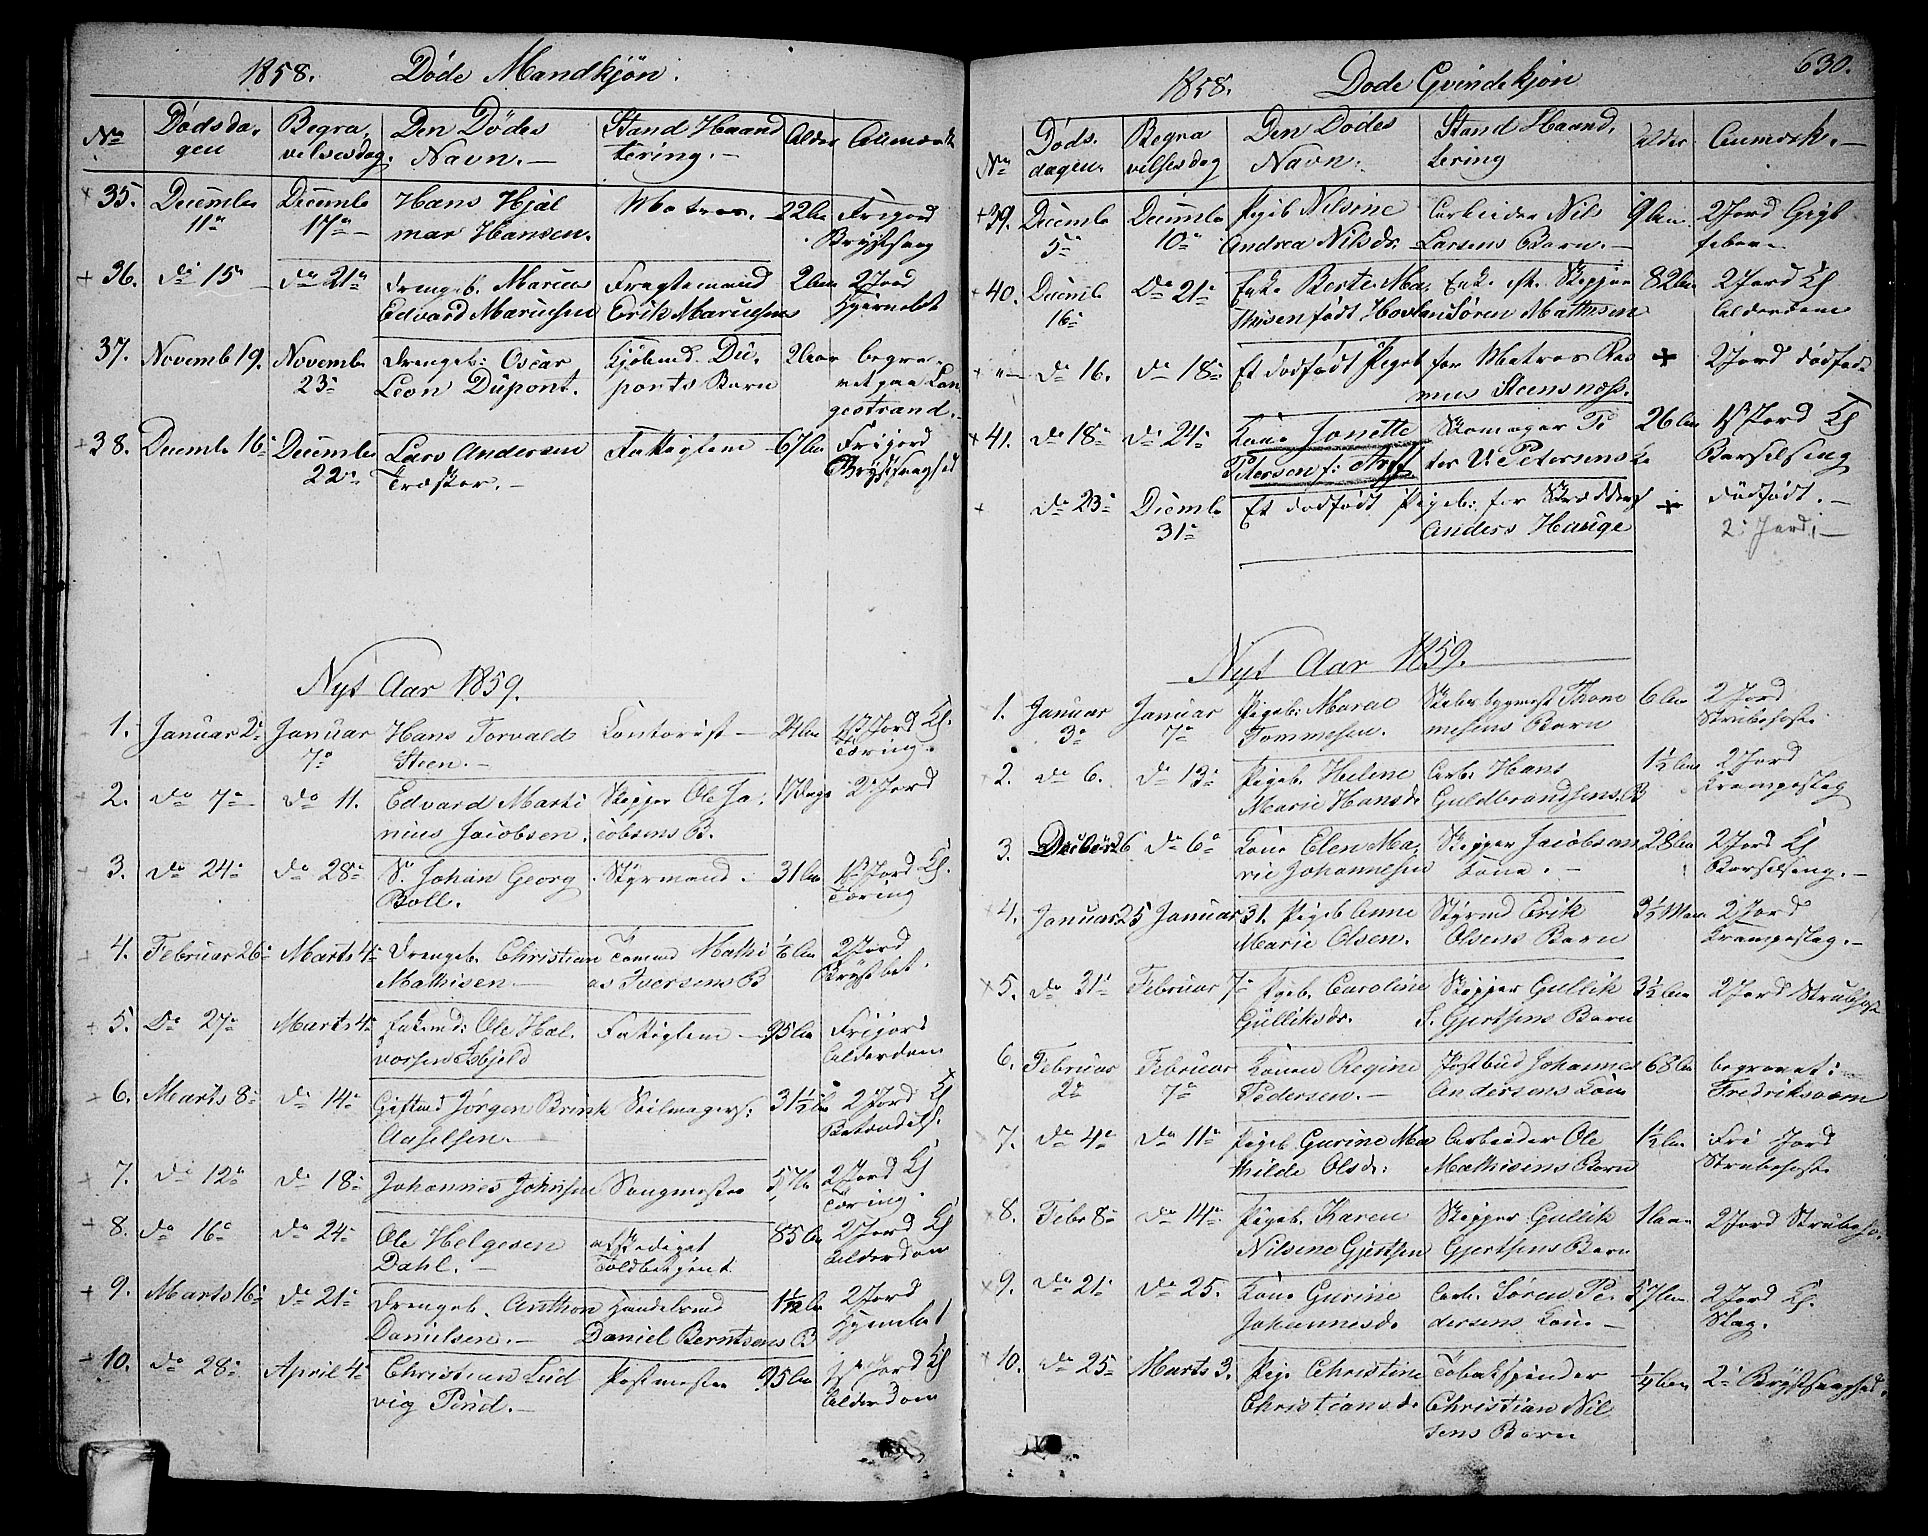 1858. Döde Mandkjön.
No Dödsda, gen Begra, vilsesdag. Den Dödes Navn. Stand Haand tering. Alder Anmærk
35. Decembr 11te Decembr 17de Hans Hjal mar Hansen. Matros. 22 Aar Frijord Brystsyg
36. do 15 do 21 Drengeb. Marius Edvard Mariusen Fragtemand Erik Mariusens 2 Aar 2 Jord
37. Novemb 19. Novembr 23 Drengeb: Oscar Leon Düpont. Kjöbmd. Dü, ponts Barn 2 Aar begra, vet paa Lan gestrand.
38. Decembr 16 Decembr 22 Lars Andersen Træsker. Fattiglem 67 Aar Frijord Brystsyghed
Nyt Aar 1859.
1. Januar 2 Januar 7 Hans Torvald Steen. Contorist 24 Aar 1st Jord Kl. Tæring.
2. do 7 do 11. Edvard Marti nius Jacobsen. Skipper Ole Ja, cobsens B. 17 Dage 2 Jord
3. do 24 do 28 S. Johan Georg Boll. Styrmand. 31 Aar 1st Jord Kl. Tæring
4. Februar 26 Marts 4 Drengeb. Christian Mathisen Tømmd Mathi as Iversens B 1/6 Aar 2 Jord Brystbet.
5. do 27 Marts 4 Enkemd: Ole Hal, vorsen Fattiglem 95 Aar Frijord Alderdom
6. Marts 8 do 14 Giftmd Jörgen Brink Axelsen. Seilmagers. 31 1/2 Aar 2 Jord Kl
7. do 12 do 18 Johannes Johnsen Sangmester 57 Aar 2 Jord Kl Tæring.
8. do 16 do 24 Ole Helgesen Dahl. afskediget Toldbetjent 85 Aar 2 Jord Kl Alderdom
9. Marts 16 do 21 Drengeb. Anthon Danielsen. Handelsmd Daniel Berntsens B 2 Jord
10. do 28 April 4 Christian Lud vig Pind. Postmester 95 Aar 1st Jord Kl Alderdom
1858. Döde Qvindekjön 630.
No Döds. dagen. Begra vilsesdag Den Dödes Navn. Stand Haand, tering Alder Anmærk.
39. Decemb 5 Decembr 10 Pigeb Nilsine Andrea Nilsdr. Arbeider Nils Larsens Barn. 9 Aar 2 Jord Gigt feber
40. Decemb 16 do 21 Enke Berte Ma, thisen født Hovlan Enke eft. Skipper Sören Mathisen 82 Aar 2 Jord Kl Alderdom
do 16. do 18 Et dødfødt Pigeb for Matros Ras mus Steensnæss. 2 Jord dødfødt
41. do 18 do 24 Kone Jonette Petersen f: Skomager Pe ter V: Petersens 26 Aar 1st Jord Kl Barselseng
do 23 Decemb 31 Et dødfødt Pigeb: for Skrædder Anders Hauge dødfødt. 2. Jord
Nyt Aar 1859.
1. Januar 3 Januar 7 Pigeb: Maral Tommesen. Skibsbygmest Thom mesens Barn 6 Aar 2 Jord Strubehoste
2. do 6. do 13 Pigeb. Helene Marie Hansdr Arb. Hans Guldbrandsens B 1 1/2 Aar 2 Jord Krampeslag
3. Decbr 26 do 6 Kone Elen Ma, rie Johannesen Skipper Jacobsens Kone. 28 Aar 2 Jord Kl Barselseng.
4. Januar 25 Januar 31. Pigeb Anne Marie Olsen. Styrmd Erik Olsens Barn 3 1/2 Maan 2 Jord Krampeslag.
5. do 31 Februar 7 Pigeb. Caroline Gülliksdr. Skipper Gullik S. Gjertsens Barn 3 1/2 Aar 2 Jord Strubehoste
6. Februar 2 Februar 7 Konen Regine Pedersen. Postbud Johannes Andersens Kone 68 Aar begravet i Fredriksværn
7. do 4 do 11 Pigeb Gurine Ma thilde Olsdr: Arbeider Ole Mathisens Barn 1 1/2 Aar Fri Jord Strubehoste
8. Febr 8 do 14 Pigeb. Karen Nilsine Gjertsen Skipper Gullik Gjertsens Barn 1 Aar 2 Jord Strubeho.
9. do 21 do 25. Kone Gurine Johannesdr Arb. Sören Pe, dersens Kone 57 Aar 2 Jord Kl. Slag.
10. do 25 Marts 3. Pige Christine Christiansdr Tobakspinder Christian Nil sens Barn 1/4 Aar 2 Brystsyghed.